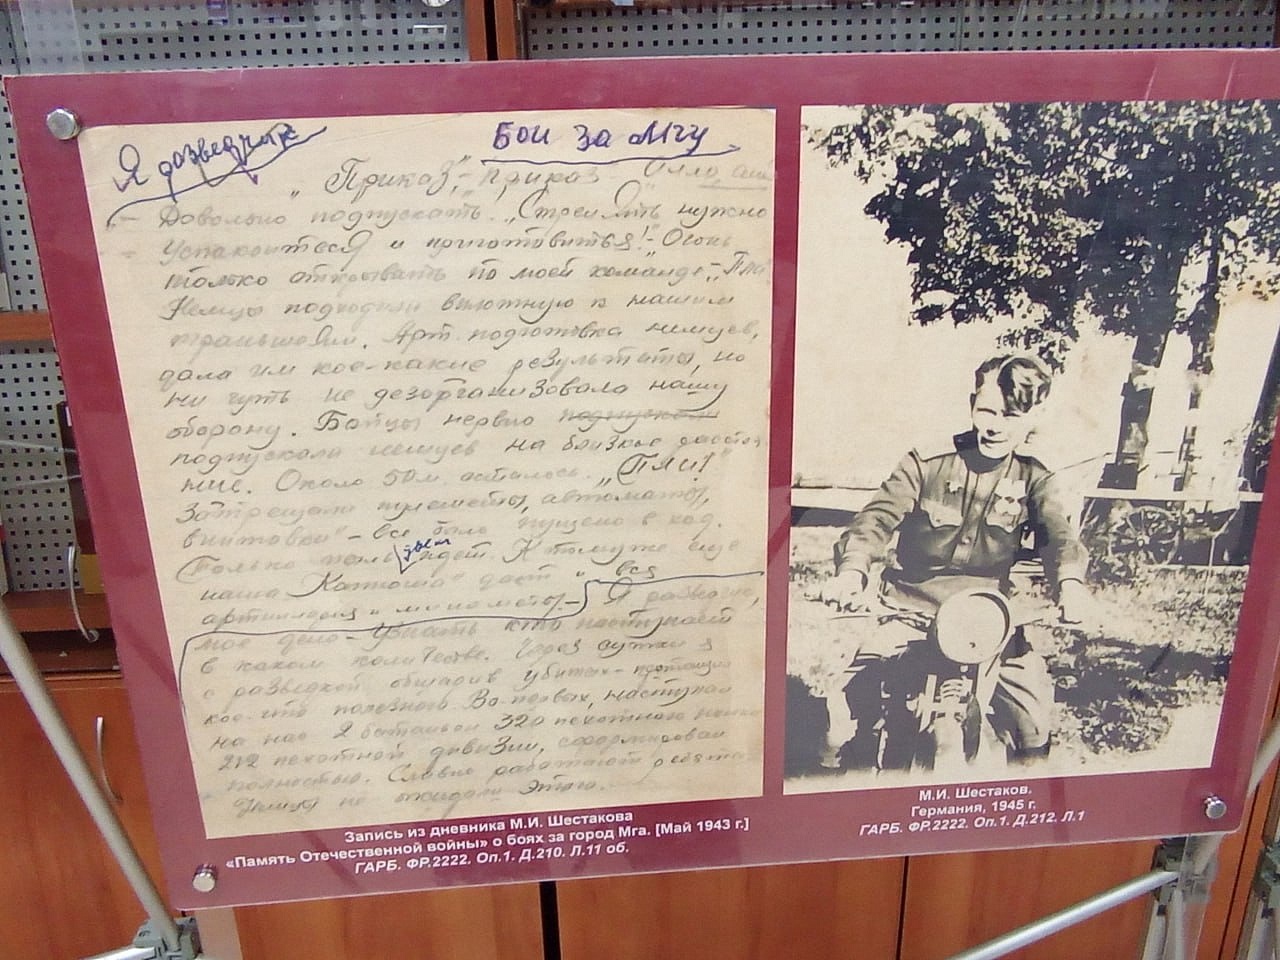 Я разведчик
Бои за Мгу
„Приказ",- приказ
- Довольно подпускать. „Стрелять нужно
- Успокоиться и приготовиться!"- Огонь
только открывать по моей команде,-
Немцы подходили вплотную к нашим
траншеям. Арт. подготовка немцев,
дала им кое-какие результаты, но
ни чуть не дезорганизовала нашу
оборону. Бойцы нервно подпускали
подпускали немцев на близкое расстоя
ние. Около 50 м. осталось. „Пли!"
Затрещали пулеметы, автоматы,
винтовки - все было пущено в ход.
Только идет. К тому же еще
наша „Катюша" даст вся
артиллерия и минометы.- Я разведчик,
мое дело - узнать кто наступает
в каком количестве. Через сутки я
с разведкой обшарив убитых-
кое-что полезного. Во-первых, наступал
на нас 2 батальон 320 пехотного полка
212 пехотной дивизии, сформирован
полностью. Славно работают ребята
Немцы не ожидали этого.
Запись из дневника М.И. Шестакова
«Память Отечественной войны» о боях за город Мга. [Май 1943 г.]
ГАРБ. ФР.2222. Оп.1. Д.210. Л.11 об.
М.И. Шестаков.
Германия, 1945 г.
ГАРБ. ФР.2222. Оп.1. Д.212. Л.1